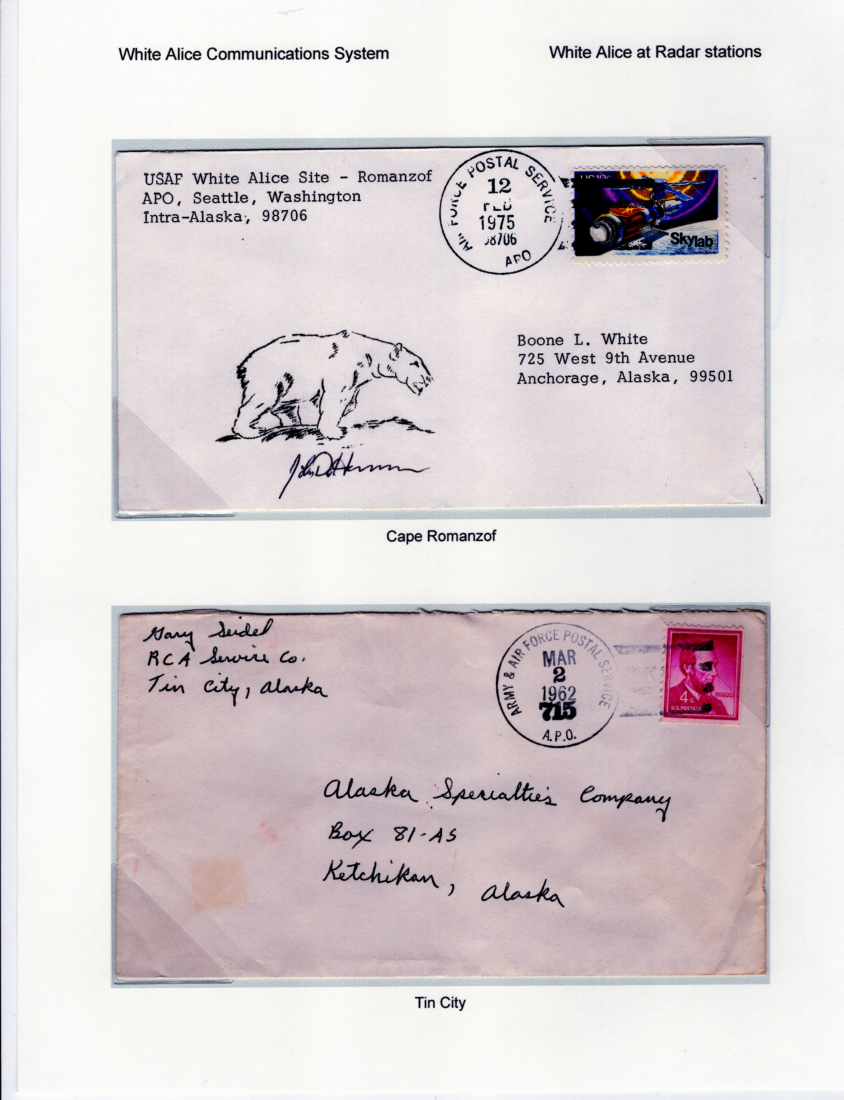 White Alice Communications System
White Alice at Radar stations
USAF White Alice Site - Romanzof
APO, Seattle, Washington
Intra-Alaska, 98706
AIR FORCE POSTAL SERVICE
12
FEB
1975
98706
APO
US 10c
Skylab
Boone L. White
725 West 9th Avenue
Anchorage, Alaska, 99501
Cape Romanzof
Gary Seidel
RCA Service Co.
Tin City, Alaska
ARMY & AIR FORCE POSTAL SERVICE
MAR
2
1962
715
A.P.O.
4¢
U.S. POSTAGE
Alaska Specialties Company
Box 81-AS
Ketchikan, Alaska
Tin City